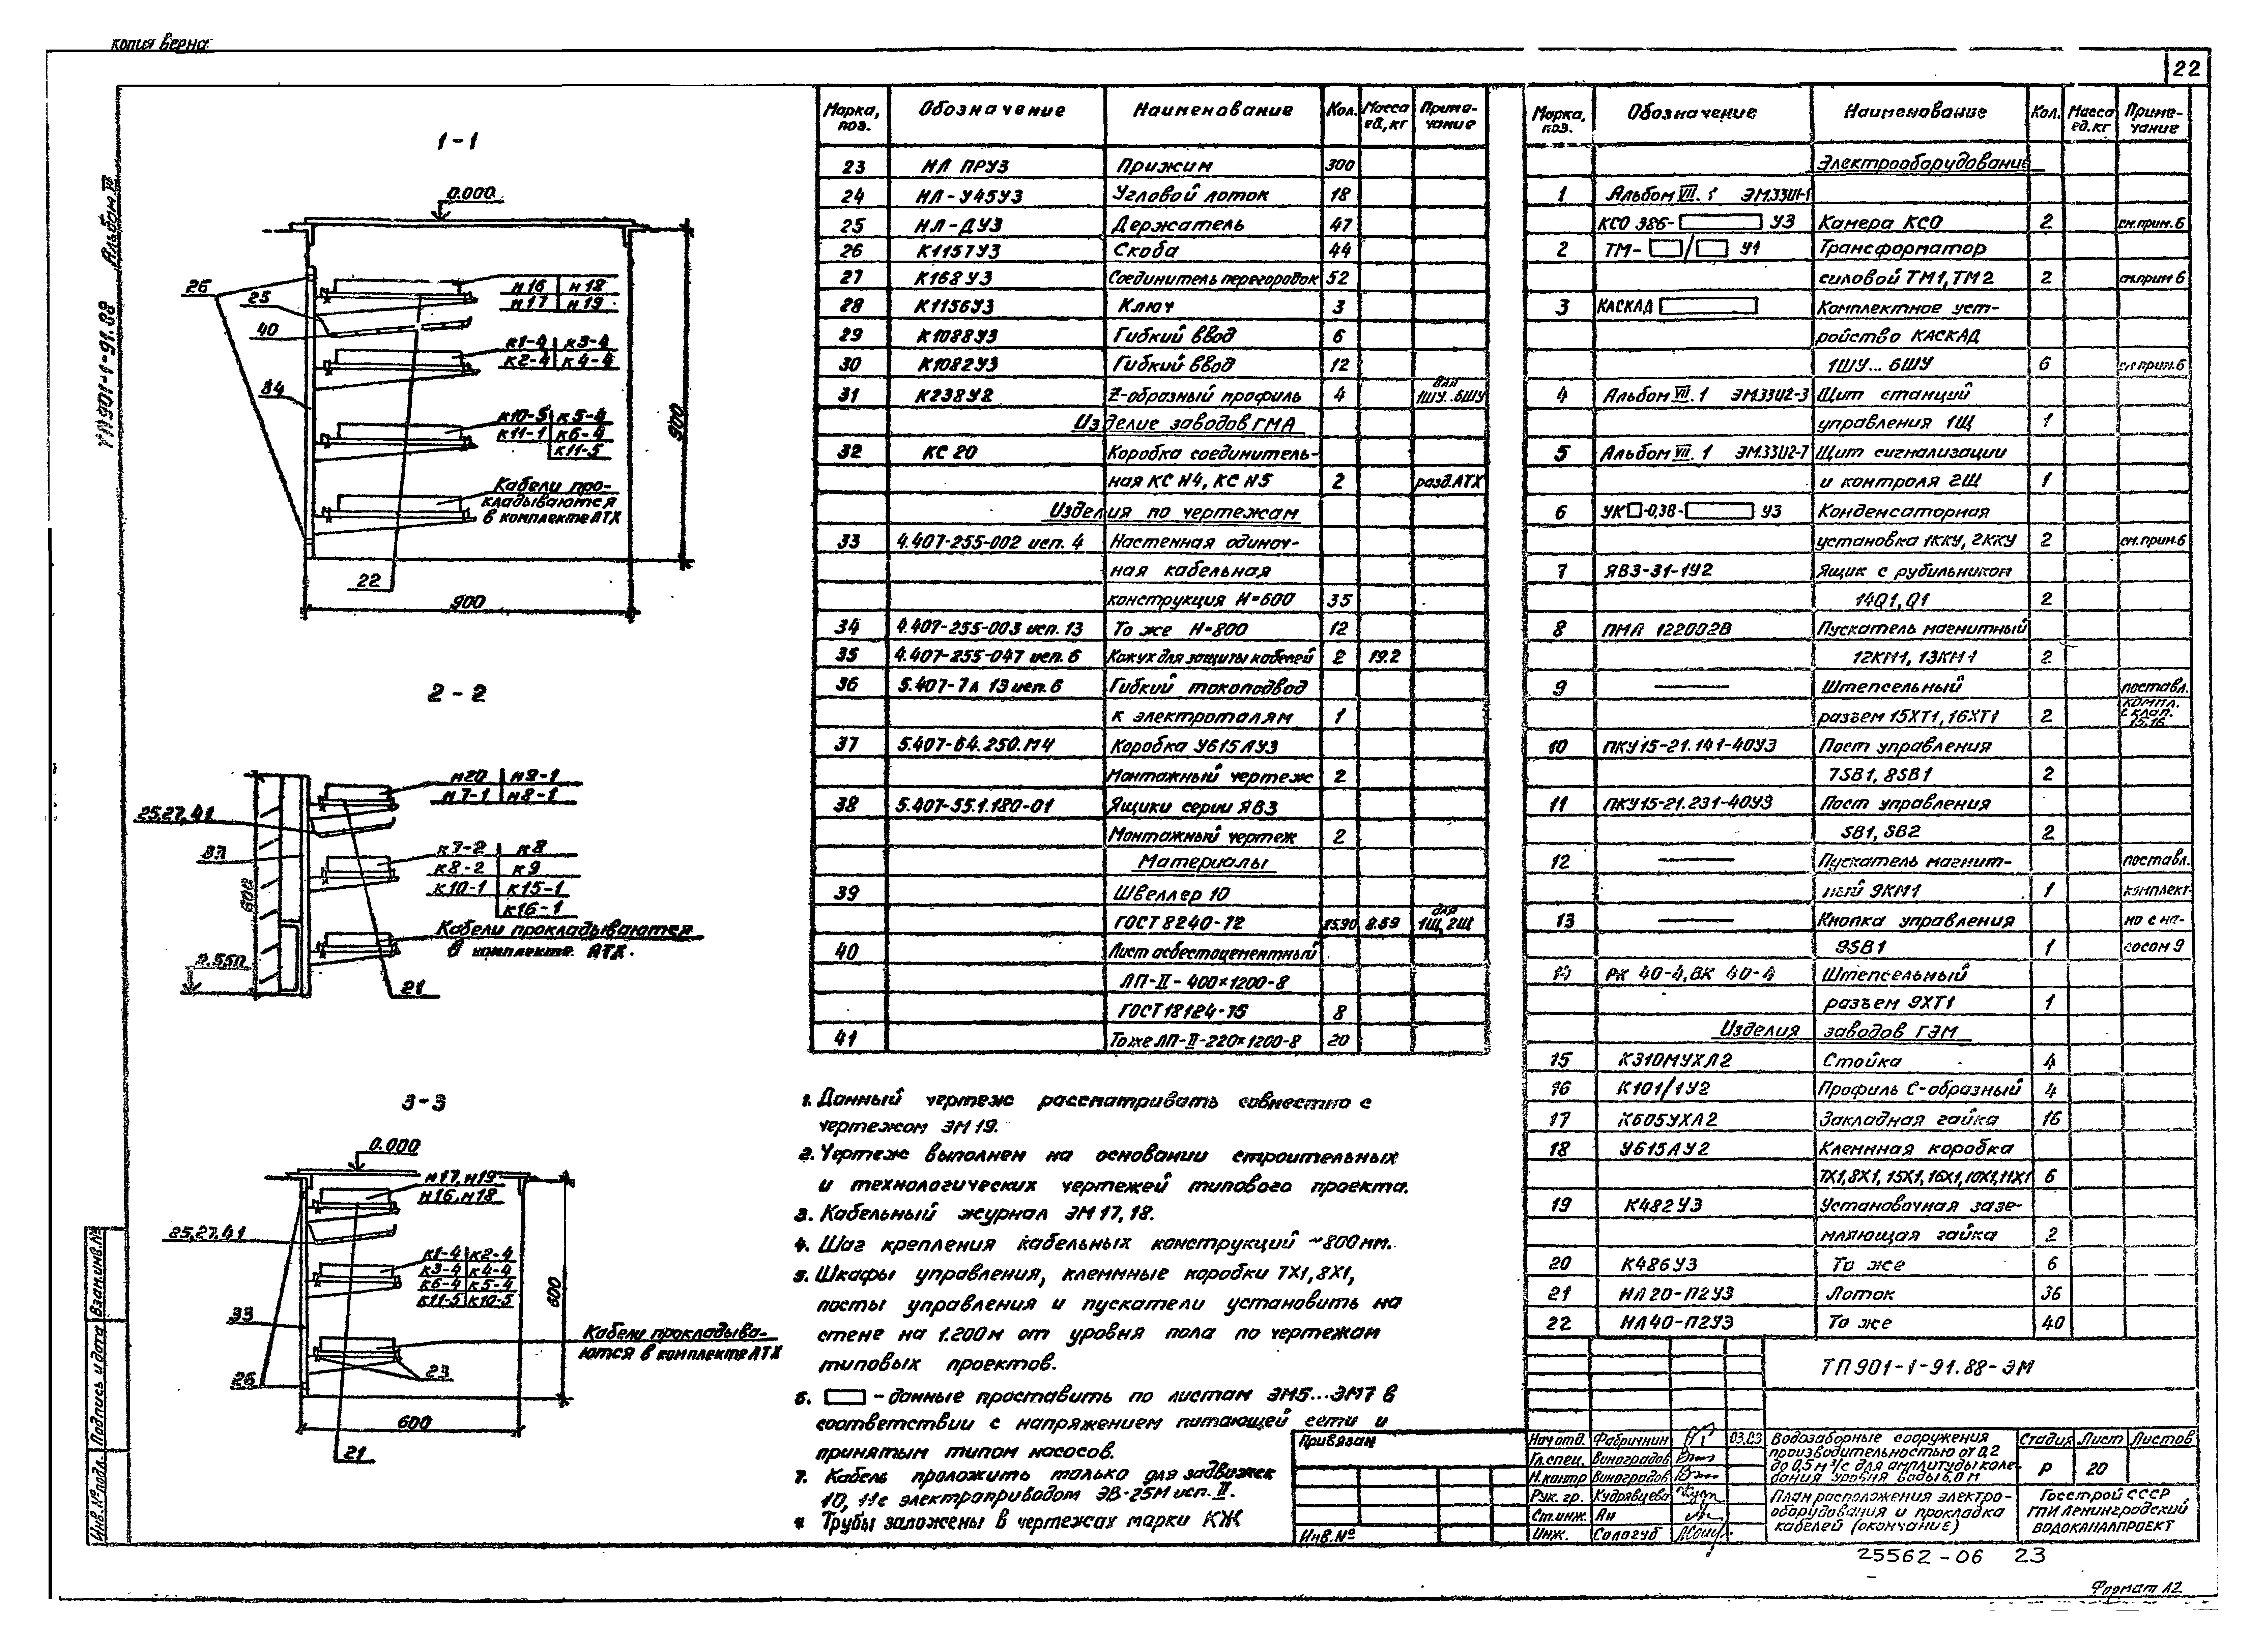 копия верна
22
ТП 901-1-91.88 Альбом VI
1-1
0.000
26
25
40
34
н16 н18
н17 н19
к1-4 к3-4
к2-4 к4-4
к10-5 к5-4
к11-1 к6-4
к11-5
Кабели про-
кладываются
в комплекте АТХ
22
900
900
2-2
н20 н9-1
н7-1 н8-1
25,27,41
к7-2 к8
к8-2 к9
к10-1 к15-1
к16-1
600
Кабели прокладываются
в комплекте АТХ.
21
3-3
0.000
н17, н19
н16, н18
25,27,41
к1-4 к2-4
к3-4 к4-4
к6-4 к5-4
к11-5 к10-5
33
600
Кабели прокладыва-
ются в комплекте АТХ
23
26
600
21
Марка, поз. Обозначение Наименование Кол. Масса ед, кг Приме-чание
23 НЛ ПРУ3 Прижим 300
24 НЛ-У45У3 Угловой лоток 18
25 НЛ-ДУ3 Держатель 47
26 К1157У3 Скоба 44
27 К168У3 Соединитель перегородок 52
28 К1156У3 Ключ 3
29 К1088У3 Гибкий ввод 6
30 К1082У3 Гибкий ввод 12
31 К238У2 Z-образный профиль 4 для 1ШУ..6ШУ
Изделие заводов ГМА
32 КС 20 Коробка соединитель-
ная КС N4, КС N5 2 разд.АТХ
Изделия по чертежам
33 4.407-255-002 исп. 4 Настенная одиноч-
ная кабельная
конструкция Н=600 35
34 4.407-255-003 исп. 13 То же Н=800 12
35 4.407-255-047 исп. 6 Кожух для защиты кабелей 2 19.2
36 5.407-7л 13 исп. 6 Гибкий токоподвод
к электроталям 1
37 5.407-64.250.М4 Коробка У615АУ3
Монтажный чертеж 2
38 5.407-55.1.180-01 Ящики серии ЯВ3
Монтажный чертеж 2
Материалы
39 Швеллер 10
ГОСТ 8240-72 8.59 для 1Щ, 2Щ
40 Лист асбестоцементный
ЛП-II-400×1200-8
ГОСТ 18124-75 8
41 То же ЛП-II-220×1200-8 20
1. Данный чертеж рассматривать совместно с
чертежом ЭМ 19.
2. Чертеж выполнен на основании строительных
и технологических чертежей типового проекта.
3. Кабельный журнал ЭМ 17, 18.
4. Шаг крепления кабельных конструкций ~800мм.
5. Шкафы управления, клеммные коробки 7Х1, 8Х1,
посты управления и пускатели установить на
стене на 1.200 м от уровня пола по чертежам
типовых проектов.
6. – данные проставить по листам ЭМ5...ЭМ7 в
соответствии с напряжением питающей сети и
принятым типом насосов.
7. Кабель проложить только для задвижек
10, 11 с электроприводом ЭВ-25М исп. II.
Трубы заложены в чертежах марки КЖ
Марка, поз. Обозначение Наименование Кол. Масса ед. кг Приме-чание
Электрооборудование
1 Альбом VII. 1 ЭМ.33И1-1
КСО 386- У3 Камера КСО 2 см.прим.6
2 ТМ- / У1 Трансформатор
силовой ТМ1, ТМ2 2 см.прим 6
3 КАСКАД Комплектное уст-
ройство КАСКАД
1ШУ... 6ШУ 6 см прим.6
4 Альбом VII. 1 ЭМ.33И2-3 Щит станций
управления 1Щ 1
5 Альбом VII. 1 ЭМ.33И2-7 Щит сигнализации
и контроля 2Щ 1
6 УК -0,38- У3 Конденсаторная
установка 1ККУ, 2ККУ 2 см.прим.6
7 ЯВ3-31-1У2 Ящик с рубильником
14Q1, Q1 2
8 ПМА 122002В Пускатель магнитный
12КМ1, 13КМ1 2
9 Штепсельный поставл.
разъем 15ХТ1, 16ХТ1 2 компл. с клап. 15,16
10 ПКУ15-21.141-40У3 Пост управления
7SB1, 8SB1 2
11 ПКУ15-21.231-40У3 Пост управления
SB1, SB2 2
12 Пускатель магнит- поставл.
ный 9КМ1 1 комплект-
13 Кнопка управления но с на-
9SB1 1 сосом 9
14 РК 40-4, ВК 40-4 Штепсельный
разъем 9ХТ1 1
Изделия заводов ГЭМ
15 К310МУХЛ2 Стойка 4
16 К101/1У2 Профиль С-образный 4
17 К605УХЛ2 Закладная гайка 16
18 У615АУ2 Клеммная коробка
7Х1, 8Х1, 15Х1, 16Х1, 10Х1, 11Х1 6
19 К482У3 Установочная зазе-
мляющая гайка 2
20 К486У3 То же 6
21 НЛ20-П2У3 Лоток 36
22 НЛ40-П2У3 То же 40
ТП 901-1-91.88-ЭМ
Привязан
Инв.№
Нач отд. Фабричнин 03.83
Гл.спец. Виноградов
Н.контр Виноградов
Рук. гр. Кудрявцева
Ст.инж. Ян
Инж. Сологуб
Водозаборные сооружения
производительностью от 0,2
до 0,5 м³/с для амплитуды коле-
бания уровня воды 6,0 м
Стадия Лист Листов
Р 20
План расположения электро-
оборудования и прокладка
кабелей (окончание)
Госстрой СССР
ГПИ Ленинградский
ВОДОКАНАЛПРОЕКТ
25562-06 23
Формат А2
Инв.№ подл. Подпись и дата Взам.инв.№